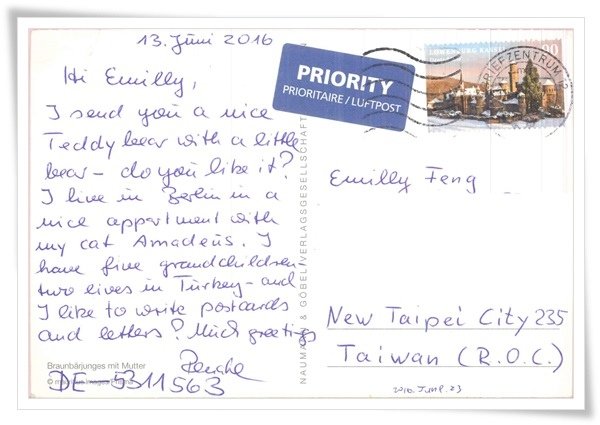 13. Juni 2016
Hi Emilly,
I send you a nice
Teddy bear with a little
bear - do you like it?
I live in Berlin in a
nice appartment with
my cat Amadeus. I
have five grandchildren
two lives in Turkey - and
I like to write postcards
and letters? Much greetings
Braunbärjunges mit Mutter
DE 5311563
PRIORITY
PRIORITAIRE / LUFTPOST
LÖWENBURG KASSEL
90
BRIEFZENTRUM
NAUMANN & GÖBEL VERLAGSGESELLSCHAFT
Emilly Feng
New Taipei City 235
Taiwan (R.O.C.)
2016. June. 23